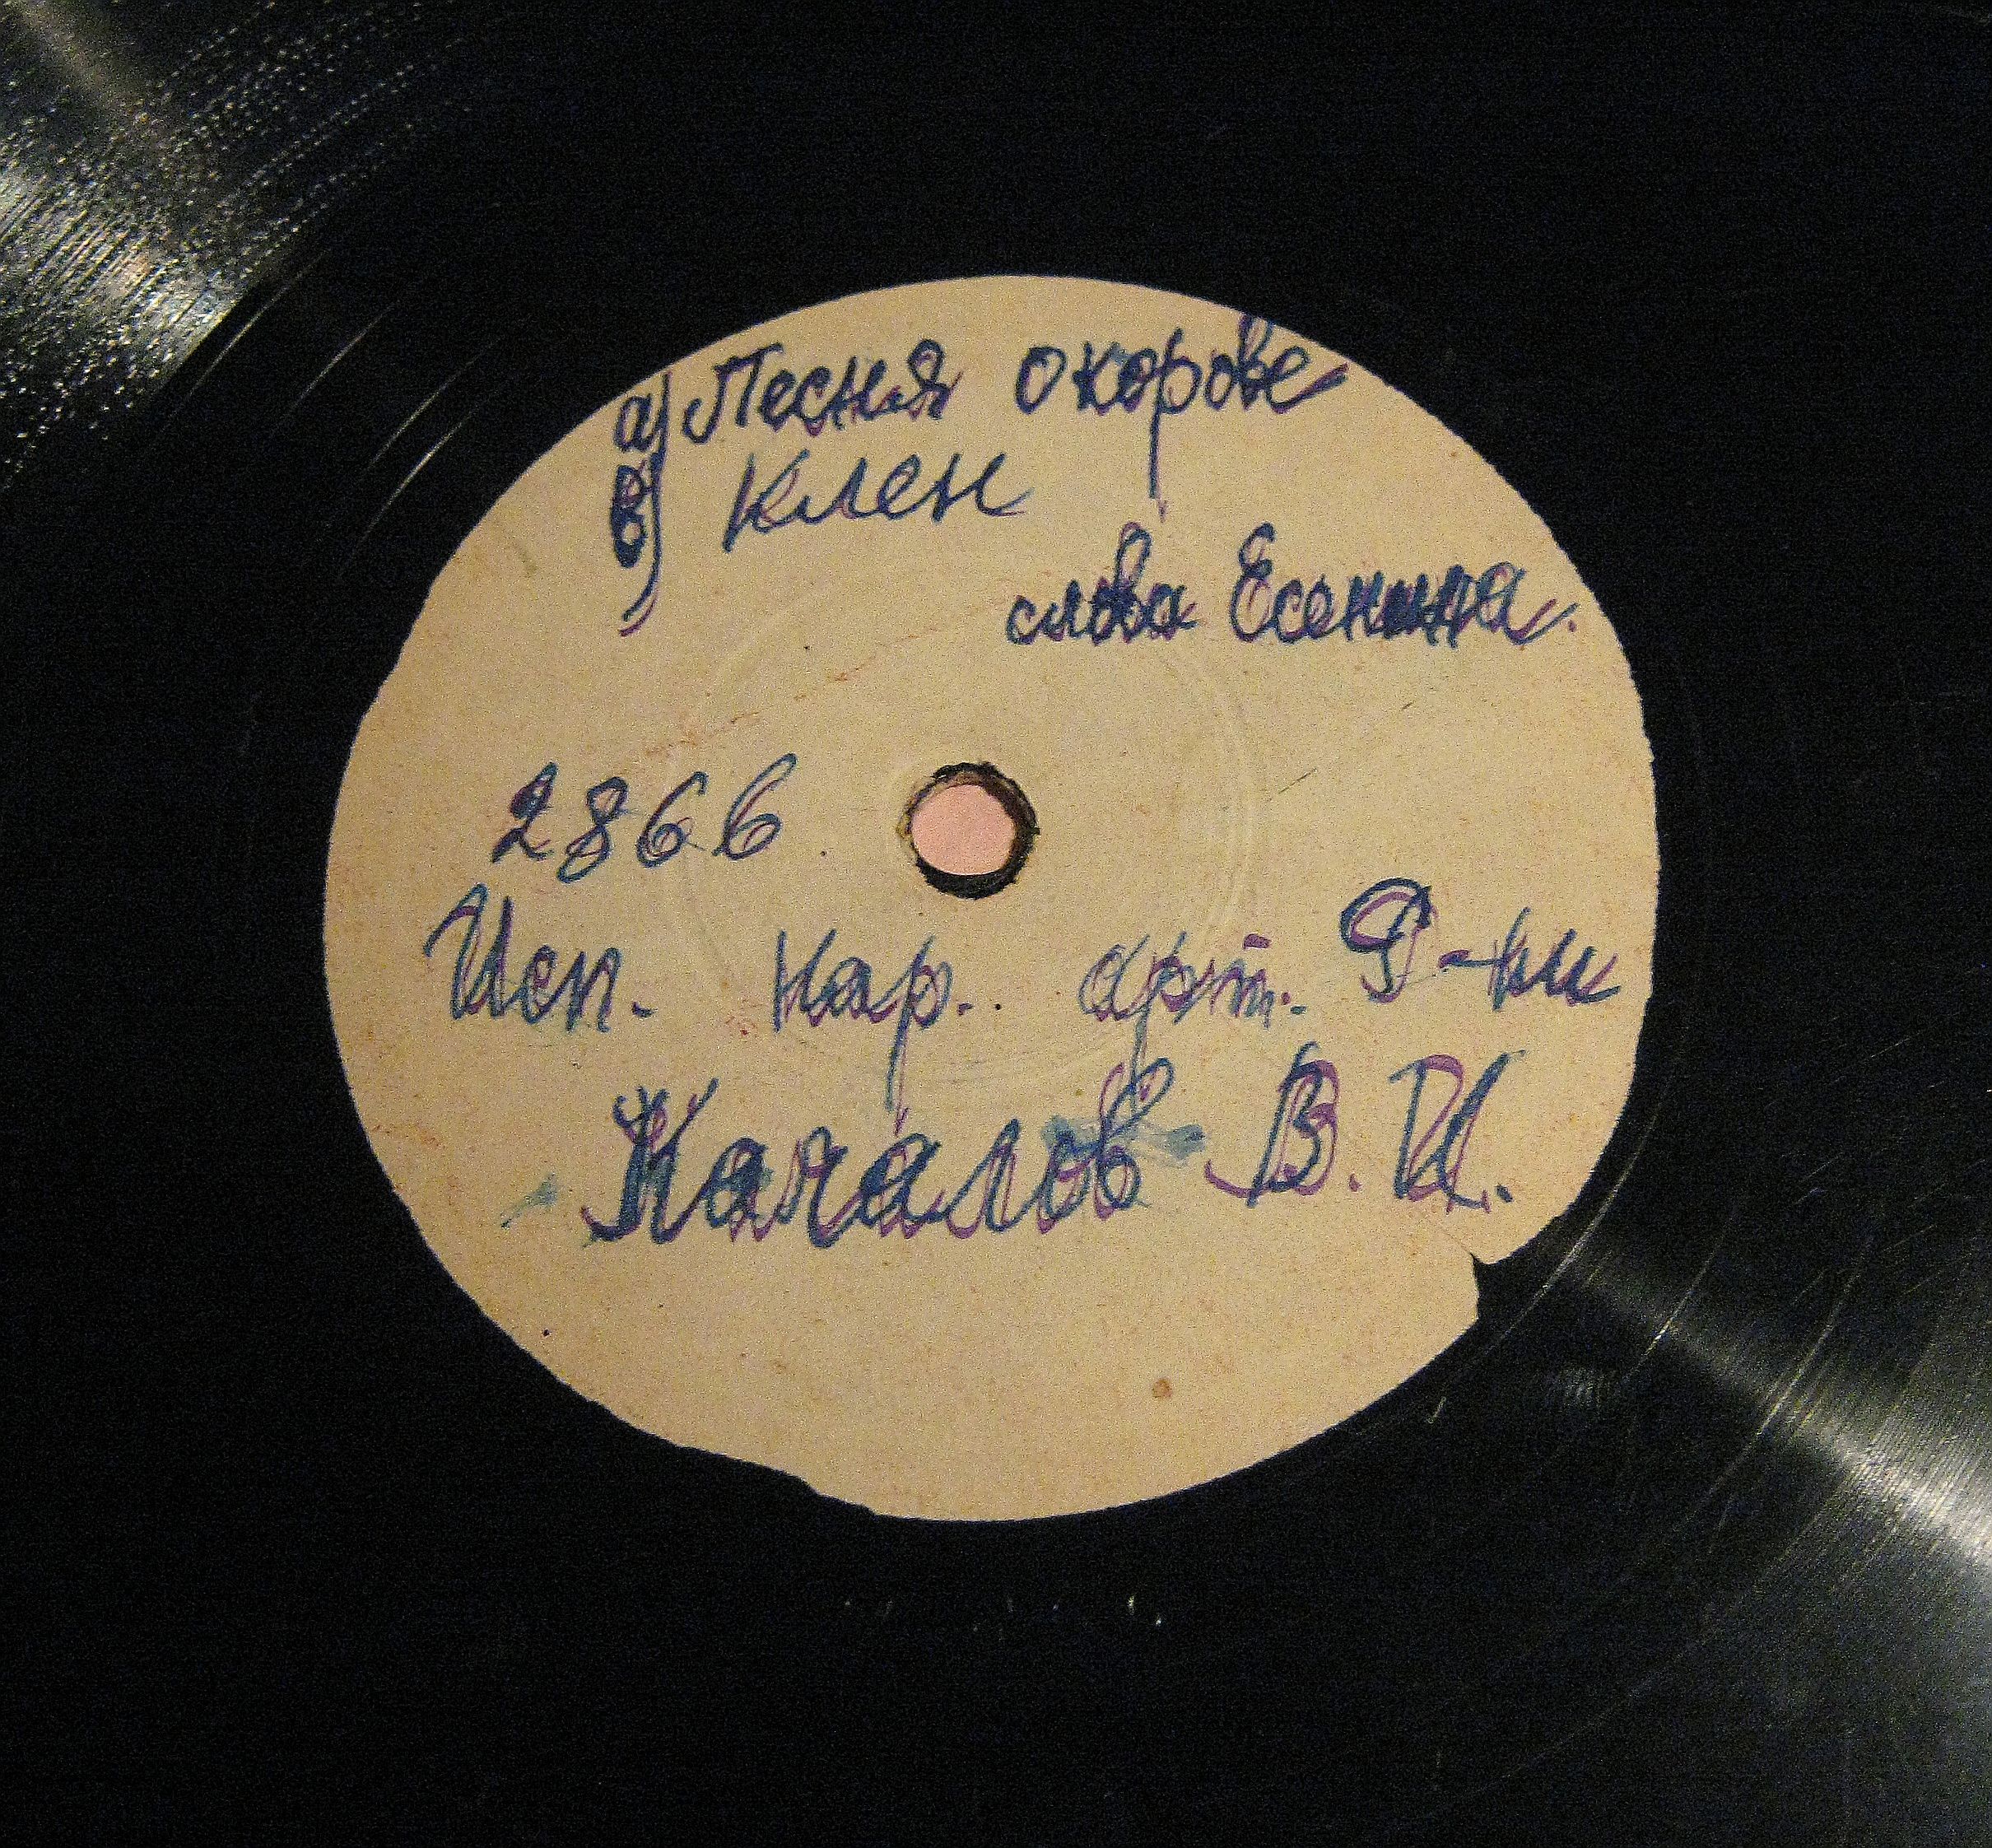 а) Песня о корове
в) Клен
слова Есенина.
2866
Исп. нар. арт. Р-ки
Качалов В. И.